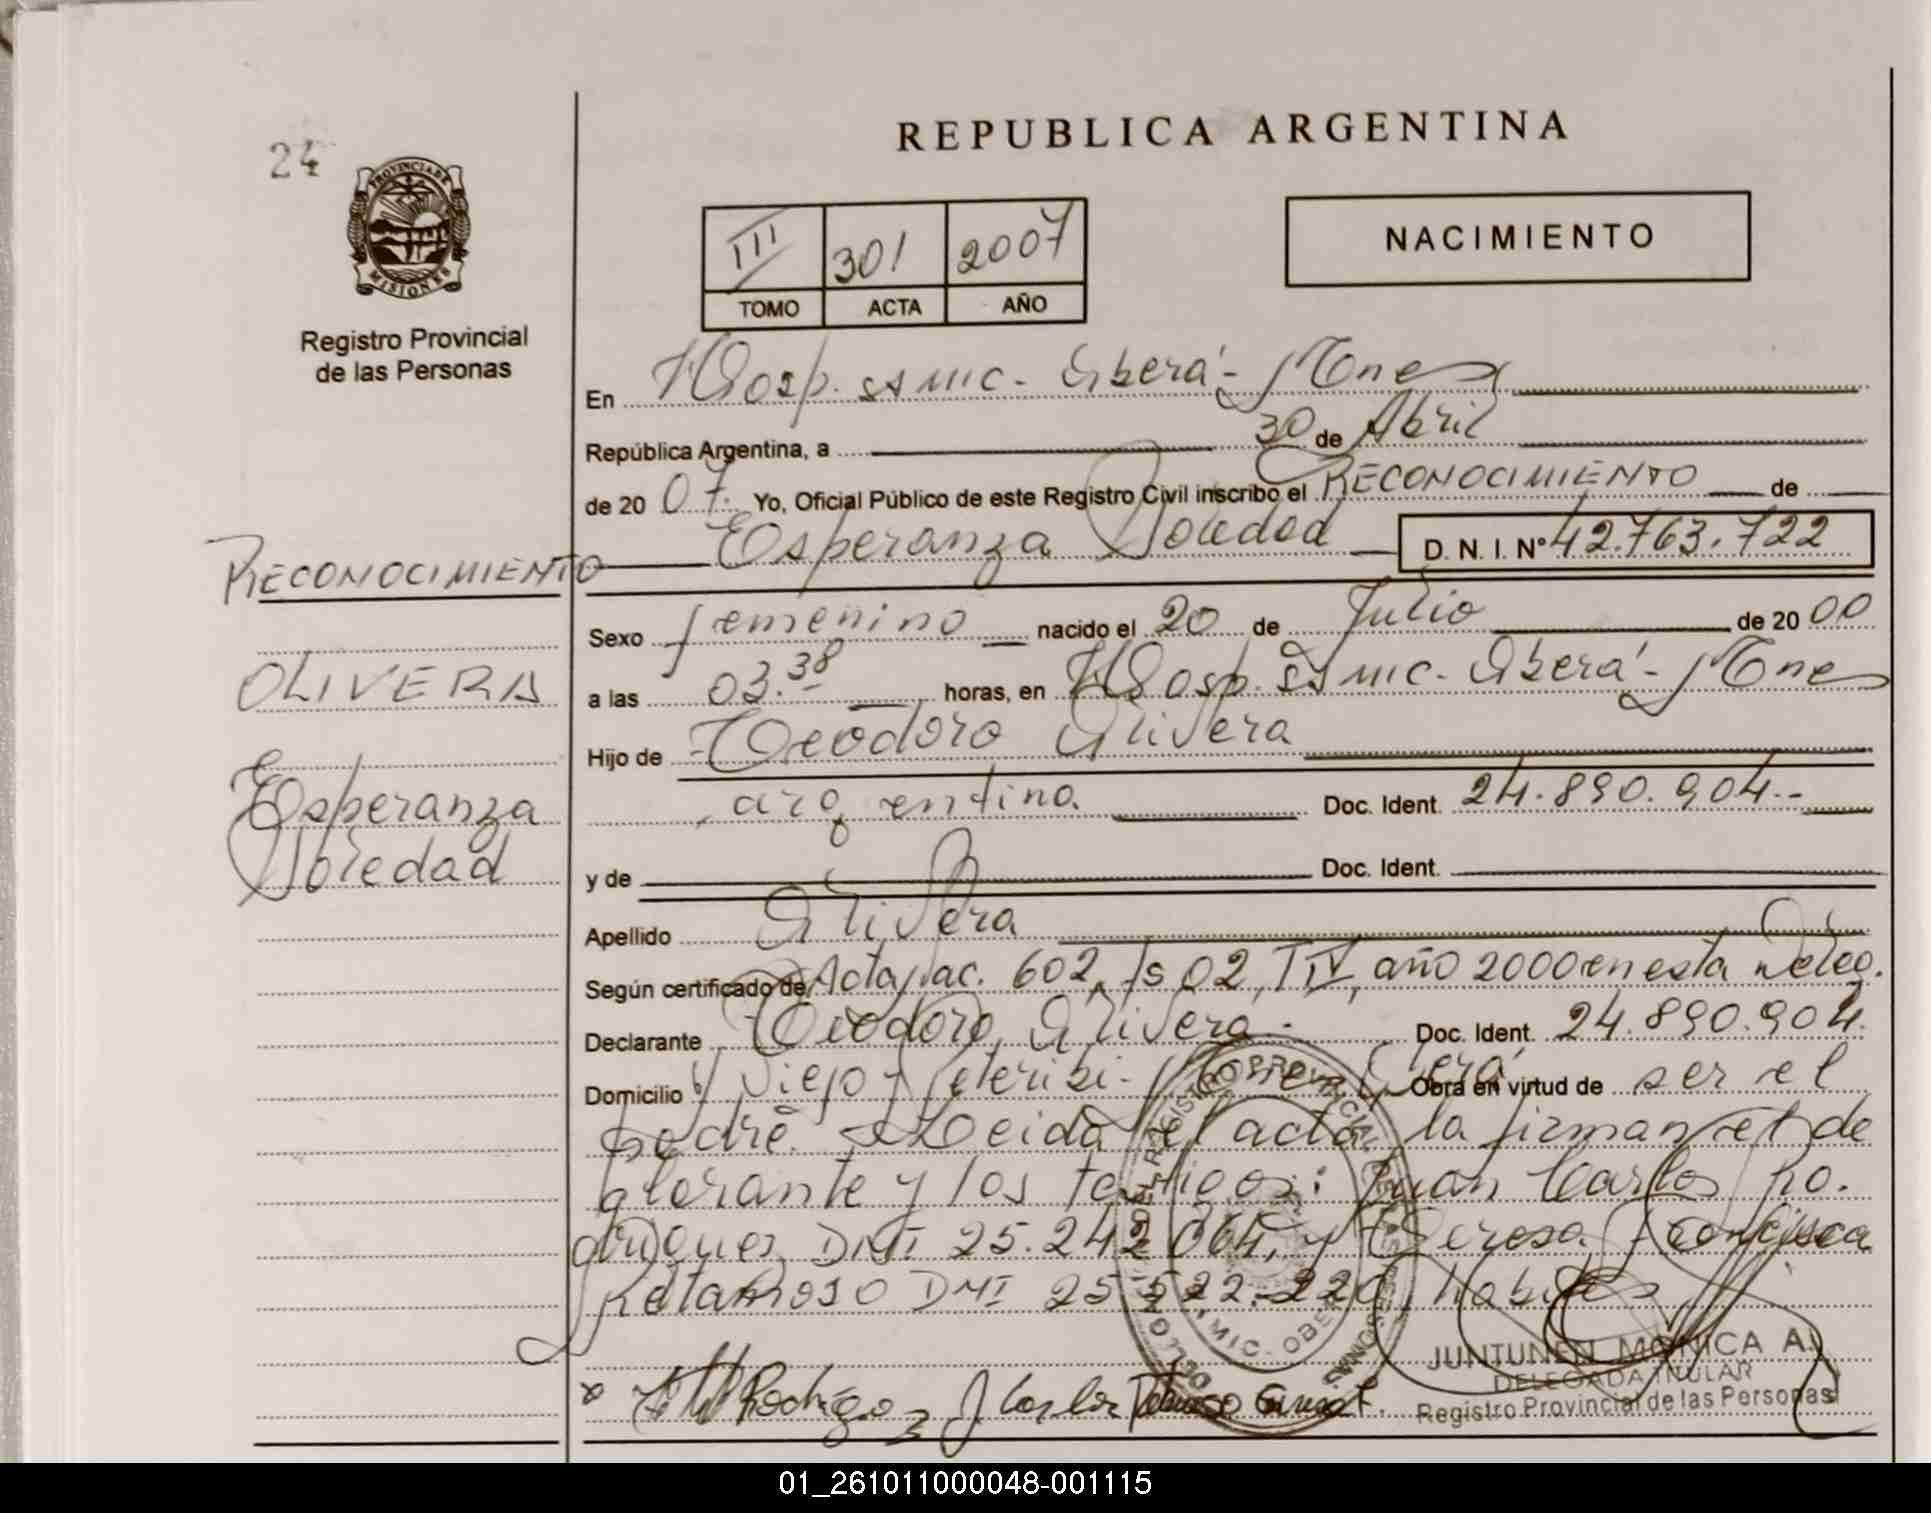 REPUBLICA ARGENTINA
24
PROVINCIA DE
MISIONES
Registro Provincial
de las Personas
III 301 2007
TOMO ACTA AÑO
NACIMIENTO
En Hosp. SAMIC - Oberá - Mnes
República Argentina, a 30 de Abril
de 20 07. Yo, Oficial Público de este Registro Civil inscribo el RECONOCIMIENTO de
Esperanza Soledad D. N. I. Nº 42.763.722
RECONOCIMIENTO
Sexo femenino nacido el 20 de Julio de 20 00
OLIVERA
a las 03.38 horas, en Hosp. SAMIC - Oberá - Mnes
Hijo de Teodoro Olivera
Esperanza
Soledad
argentino Doc. Ident. 24.890.904.-
y de Doc. Ident.
Apellido Olivera
Según certificado de Acta, ac. 602, fs 02, T IV, año 2000 en esta Deleg.
Declarante Teodoro Olivera - Doc. Ident. 24.890.904.
Domicilio Viejo Oberá Obra en virtud de ser el
padre. Leida el acta la firman el de
clarante y los testigos: Juan Carlos Ro.
driguez DNI 25.242.064, y Teresa Francisca
DNI 25.522.220, habiles
Rodriguez J. Carlos
JUNTUNEN MONICA A.
DELEGADA TITULAR
Registro Provincial de las Personas
01_261011000048-001115